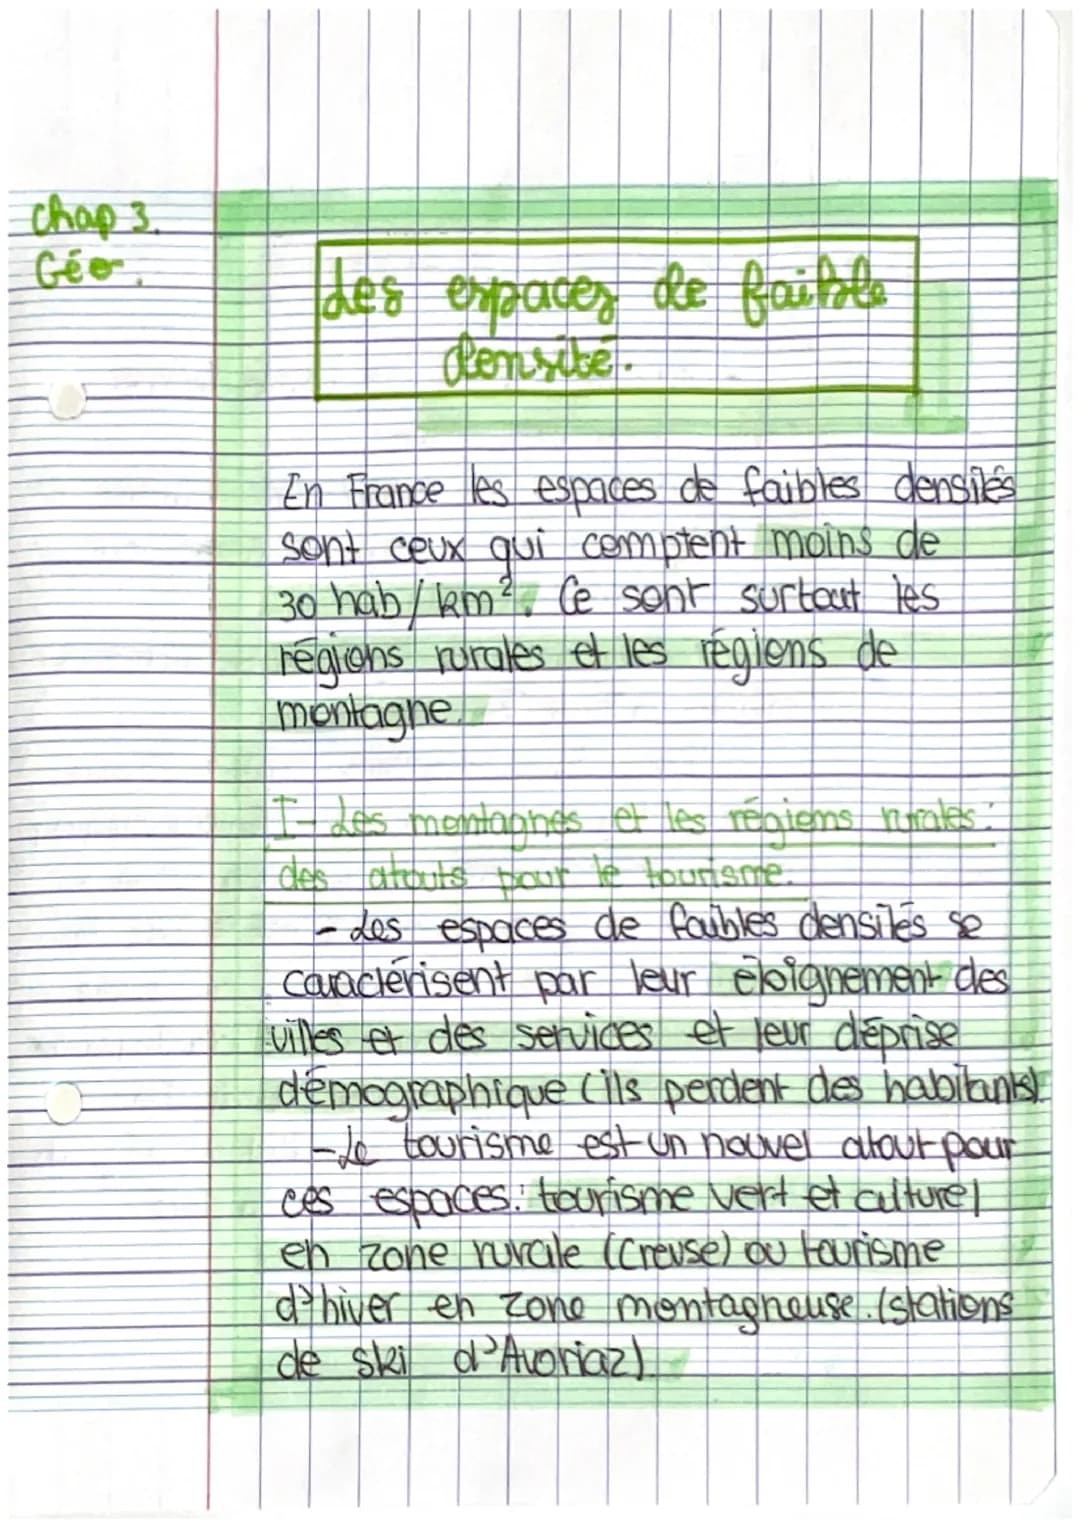 Chap 3.
Géo.
Les espaces de faible
densité.
En France les espaces de faibles densités
sont ceux qui comptent moins de
30 hab/km². Ce sont surtout les
régions rurales et les régions de
montagne.
I- Les montagnes et les régions rurales :
des atouts pour le tourisme.
- Les espaces de faibles densités se
caractérisent par leur éloignement des
villes et des services et leur déprise
démographique (ils perdent des habitants).
- Le tourisme est un nouvel atout pour
ces espaces : tourisme vert et culturel
en zone rurale (Creuse) ou tourisme
d'hiver en zone montagneuse. (stations
de ski d'Avoriaz).